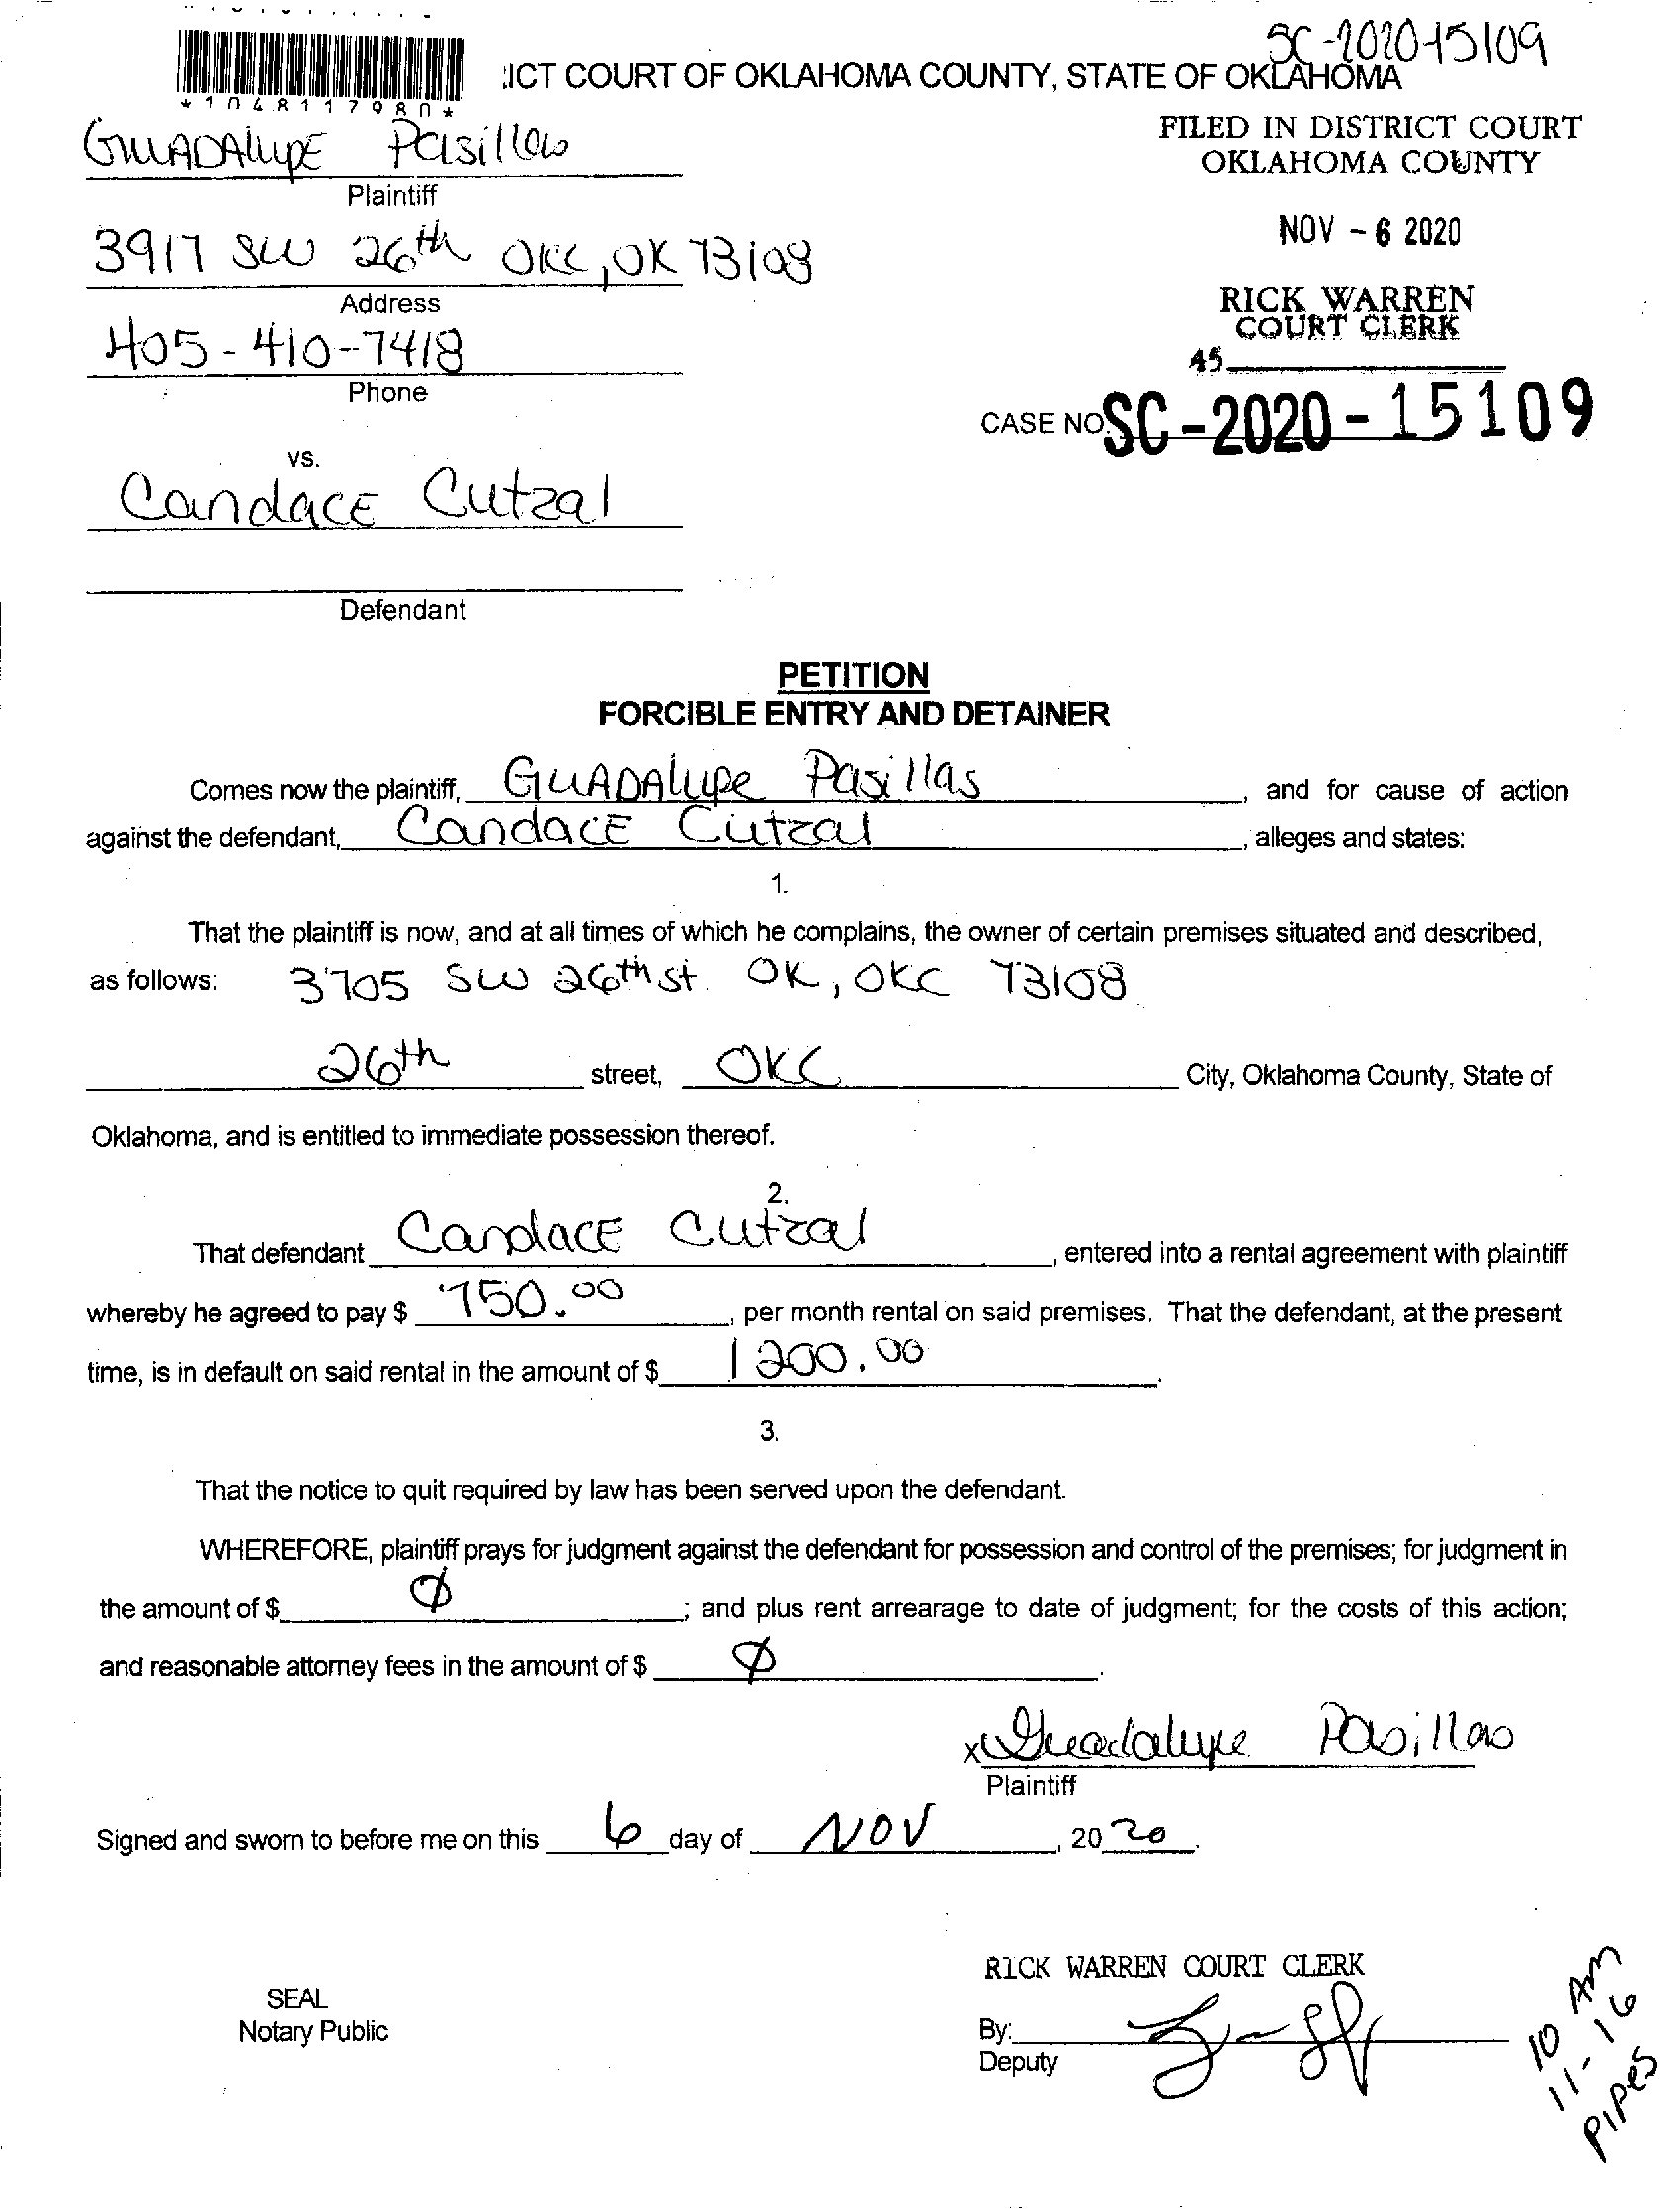 SC-2020-15109
*1048117980*
ICT COURT OF OKLAHOMA COUNTY, STATE OF OKLAHOMA
FILED IN DISTRICT COURT
OKLAHOMA COUNTY
GUADALUPE Pasillas
Plaintiff
NOV - 6 2020
3917 SW 26th OKC, OK 73108
Address
RICK WARREN
COURT CLERK
405-410-7418
45
Phone
CASE NO. SC-2020-15109
vs.
CandacE Cutzal
Defendant
PETITION
FORCIBLE ENTRY AND DETAINER
Comes now the plaintiff, GUADALupe Pasillas, and for cause of action
against the defendant, CandacE Cutzal, alleges and states:
1.
That the plaintiff is now, and at all times of which he complains, the owner of certain premises situated and described,
as follows: 3705 SW 26th st. OK, OKC 73108
26th street, OKC City, Oklahoma County, State of
Oklahoma, and is entitled to immediate possession thereof.
2.
That defendant CandacE Cutzal, entered into a rental agreement with plaintiff
whereby he agreed to pay $ 750.00, per month rental on said premises. That the defendant, at the present
time, is in default on said rental in the amount of $ 1200.00.
3.
That the notice to quit required by law has been served upon the defendant.
WHEREFORE, plaintiff prays for judgment against the defendant for possession and control of the premises; for judgment in
the amount of $ Ø; and plus rent arrearage to date of judgment; for the costs of this action;
and reasonable attorney fees in the amount of $ Ø.
x Guadalupe Pasillas
Plaintiff
Signed and sworn to before me on this 6 day of NOV, 2020.
RICK WARREN COURT CLERK
SEAL
Notary Public
By:
Deputy
10 AM
11-16
PIPES